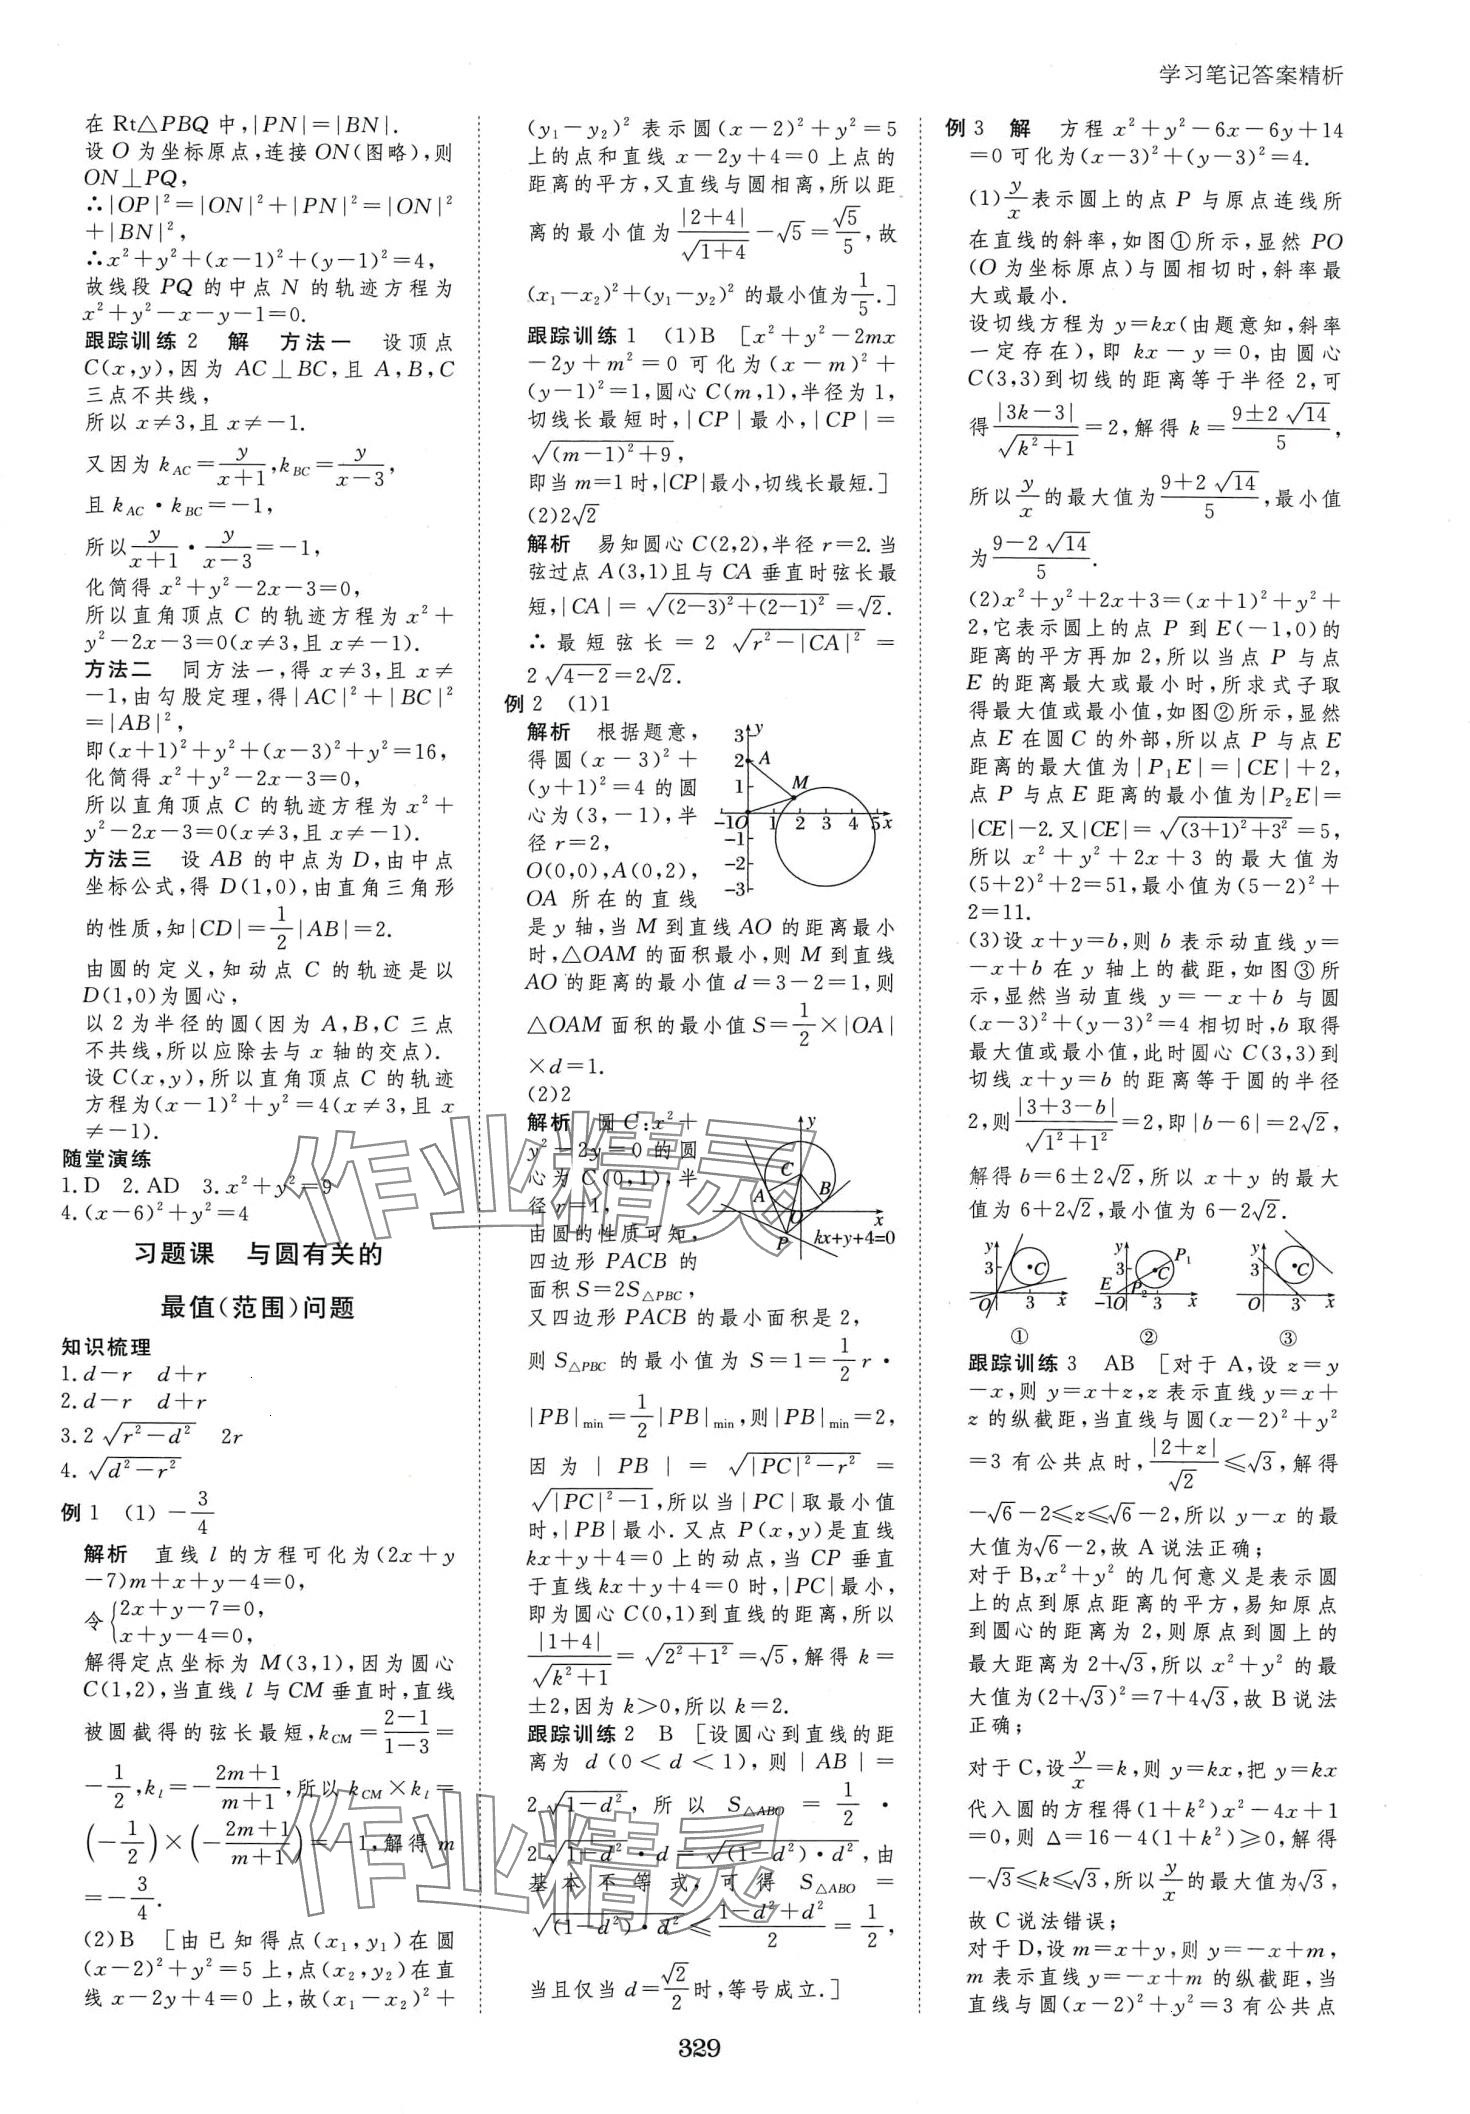 学习笔记答案精析
在 Rt△PBQ 中,|PN|=|BN|.
设 O 为坐标原点,连接 ON(图略),则
ON⊥PQ,
∴|OP|²=|ON|²+|PN|²=|ON|²
+|BN|²,
∴x²+y²+(x-1)²+(y-1)²=4,
故线段 PQ 的中点 N 的轨迹方程为
x²+y²-x-y-1=0.
跟踪训练 2 解 方法一 设顶点
C(x,y),因为 AC⊥BC,且 A,B,C
三点不共线,
所以 x≠3,且 x≠-1.
又因为 k_AC=y/(x+1),k_BC=y/(x-3),
且 k_AC·k_BC=-1,
所以 y/(x+1)·y/(x-3)=-1,
化简得 x²+y²-2x-3=0,
所以直角顶点 C 的轨迹方程为 x²+
y²-2x-3=0(x≠3,且 x≠-1).
方法二 同方法一,得 x≠3,且 x≠
-1,由勾股定理,得|AC|²+|BC|²
=|AB|²,
即(x+1)²+y²+(x-3)²+y²=16,
化简得 x²+y²-2x-3=0,
所以直角顶点 C 的轨迹方程为 x²+
y²-2x-3=0(x≠3,且 x≠-1).
方法三 设 AB 的中点为 D,由中点
坐标公式,得 D(1,0),由直角三角形
的性质,知|CD|=1/2|AB|=2.
由圆的定义,知动点 C 的轨迹是以
D(1,0)为圆心,
以 2 为半径的圆(因为 A,B,C 三点
不共线,所以应除去与 x 轴的交点).
设 C(x,y),所以直角顶点 C 的轨迹
方程为(x-1)²+y²=4(x≠3,且 x
≠-1).
随堂演练
1.D 2.AD 3.x²+y²=9
4.(x-6)²+y²=4
习题课 与圆有关的
最值(范围)问题
知识梳理
1.d-r d+r
2.d-r d+r
3.2√(r²-d²) 2r
4.√(d²-r²)
例 1 (1)-3/4
解析 直线 l 的方程可化为(2x+y
-7)m+x+y-4=0,
令{2x+y-7=0,
x+y-4=0,
解得定点坐标为 M(3,1),因为圆心
C(1,2),当直线 l 与 CM 垂直时,直线
被圆截得的弦长最短,k_CM=(2-1)/(1-3)=
-1/2,k_l=-(2m+1)/(m+1),所以 k_CM×k_l=
(-1/2)×(-(2m+1)/(m+1))=-1,解得 m
=-3/4.
(2)B [由已知得点(x₁,y₁)在圆
(x-2)²+y²=5 上,点(x₂,y₂)在直
线 x-2y+4=0 上,故(x₁-x₂)²+
(y₁-y₂)² 表示圆(x-2)²+y²=5
上的点和直线 x-2y+4=0 上点的
距离的平方,又直线与圆相离,所以距
离的最小值为|2+4|/√(1+4)-√5=√5/5,故
(x₁-x₂)²+(y₁-y₂)² 的最小值为1/5.]
跟踪训练 1 (1)B [x²+y²-2mx
-2y+m²=0 可化为(x-m)²+
(y-1)²=1,圆心 C(m,1),半径为 1,
切线长最短时,|CP|最小,|CP|=
√((m-1)²+9),
即当 m=1 时,|CP|最小,切线长最短.]
(2)2√2
解析 易知圆心 C(2,2),半径 r=2.当
弦过点 A(3,1)且与 CA 垂直时弦长最
短,|CA|=√((2-3)²+(2-1)²)=√2.
∴最短弦长=2√(r²-|CA|²)=
2√(4-2)=2√2.
例 2 (1)1
解析 根据题意,
得圆(x-3)²+
(y+1)²=4 的圆
心为(3,-1),半
径 r=2,
O(0,0),A(0,2),
OA 所在的直线
3 y
2 A
1 M
-1 O 1 2 3 4 5 x
-1
-2
-3
是 y 轴,当 M 到直线 AO 的距离最小
时,△OAM 的面积最小,则 M 到直线
AO 的距离的最小值 d=3-2=1,则
△OAM 面积的最小值 S=1/2×|OA|
×d=1.
(2)2
解析 圆 C:x²+
y²-2y=0 的圆
心为 C(0,1),半
径 r=1,
由圆的性质可知,
四边形 PACB 的
面积 S=2S△PBC,
y
C
A B
O x
P kx+y+4=0
又四边形 PACB 的最小面积是 2,
则 S△PBC 的最小值为 S=1=1/2 r·
|PB|min=1/2|PB|min,则|PB|min=2,
因为|PB|=√(|PC|²-r²)=
√(|PC|²-1),所以当|PC|取最小值
时,|PB|最小.又点 P(x,y)是直线
kx+y+4=0 上的动点,当 CP 垂直
于直线 kx+y+4=0 时,|PC|最小,
即为圆心 C(0,1)到直线的距离,所以
|1+4|/√(k²+1)=√(2²+1²)=√5,解得 k=
±2,因为 k>0,所以 k=2.
跟踪训练 2 B [设圆心到直线的距
离为 d(0<d<1),则|AB|=
2√(1-d²),所以 S△ABO=1/2·
2√(1-d²)·d=√((1-d²)·d²),由
基本不等式,可得 S△ABO=
√((1-d²)·d²)≤(1-d²+d²)/2=1/2,
当且仅当 d=√2/2时,等号成立.]
例 3 解 方程 x²+y²-6x-6y+14
=0 可化为(x-3)²+(y-3)²=4.
(1)y/x表示圆上的点 P 与原点连线所
在直线的斜率,如图①所示,显然 PO
(O 为坐标原点)与圆相切时,斜率最
大或最小.
设切线方程为 y=kx(由题意知,斜率
一定存在),即 kx-y=0,由圆心
C(3,3)到切线的距离等于半径 2,可
得|3k-3|/√(k²+1)=2,解得 k=(9±2√14)/5,
所以y/x的最大值为(9+2√14)/5,最小值
为(9-2√14)/5.
(2)x²+y²+2x+3=(x+1)²+y²+
2,它表示圆上的点 P 到 E(-1,0)的
距离的平方再加 2,所以当点 P 与点
E 的距离最大或最小时,所求式子取
得最大值或最小值,如图②所示,显然
点 E 在圆 C 的外部,所以点 P 与点 E
距离的最大值为|P₁E|=|CE|+2,
点 P 与点 E 距离的最小值为|P₂E|=
|CE|-2.又|CE|=√((3+1)²+3²)=5,
所以 x²+y²+2x+3 的最大值为
(5+2)²+2=51,最小值为(5-2)²+
2=11.
(3)设 x+y=b,则 b 表示动直线 y=
-x+b 在 y 轴上的截距,如图③所
示,显然当动直线 y=-x+b 与圆
(x-3)²+(y-3)²=4 相切时,b 取得
最大值或最小值,此时圆心 C(3,3)到
切线 x+y=b 的距离等于圆的半径
2,则|3+3-b|/√(1²+1²)=2,即|b-6|=2√2,
解得 b=6±2√2,所以 x+y 的最大
值为 6+2√2,最小值为 6-2√2.
y 3 C O 3 x
y P₁ 3 C E P₂ -1 O 3 x
y 3 C O 3 x
① ② ③
跟踪训练 3 AB [对于 A,设 z=y
-x,则 y=x+z,z 表示直线 y=x+
z 的纵截距,当直线与圆(x-2)²+y²
=3 有公共点时,|2+z|/√2≤√3,解得
-√6-2≤z≤√6-2,所以 y-x 的最
大值为√6-2,故 A 说法正确;
对于 B,x²+y² 的几何意义是表示圆
上的点到原点距离的平方,易知原点
到圆心的距离为 2,则原点到圆上的
最大距离为 2+√3,所以 x²+y² 的最
大值为(2+√3)²=7+4√3,故 B 说法
正确;
对于 C,设y/x=k,则 y=kx,把 y=kx
代入圆的方程得(1+k²)x²-4x+1
=0,则 Δ=16-4(1+k²)≥0,解得
-√3≤k≤√3,所以y/x的最大值为√3,
故 C 说法错误;
对于 D,设 m=x+y,则 y=-x+m,
m 表示直线 y=-x+m 的纵截距,当
直线与圆(x-2)²+y²=3 有公共点
作业精灵
作业精灵
329